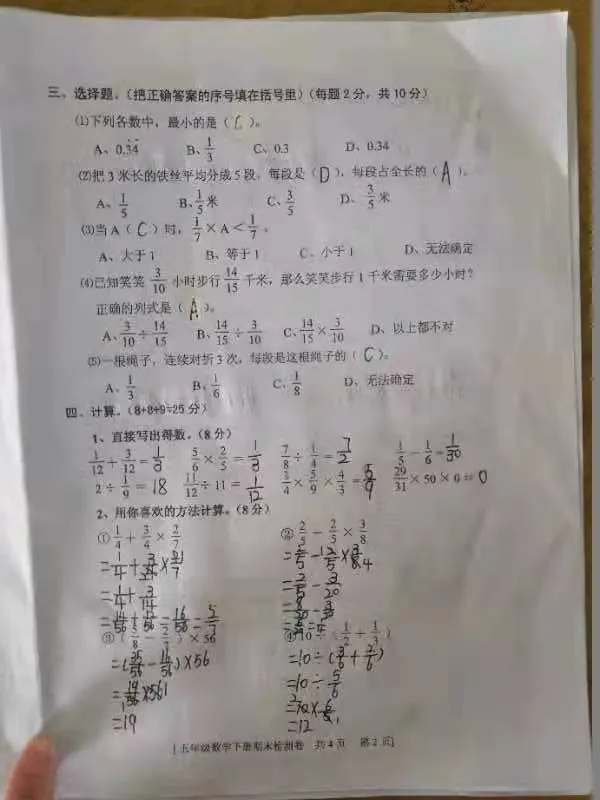 三、选择题。(把正确答案的序号填在括号里)(每题2分,共10分)
(1)下列各数中,最小的是(C)。
A、0.3̇4̇ B、1/3 C、0.3 D、0.34
(2)把3米长的铁丝平均分成5段,每段是(D),每段占全长的(A)。
A、1/5 B、1/5米 C、3/5 D、3/5米
(3)当A(C)时,1/7×A<1/7。
A、大于1 B、等于1 C、小于1 D、无法确定
(4)已知笑笑3/10小时步行14/15千米,那么笑笑步行1千米需要多少小时?
正确的列式是(A)。
A、3/10÷14/15 B、14/15÷3/10 C、14/15×3/10 D、以上都不对
(5)一根绳子,连续对折3次,每段是这根绳子的(C)。
A、1/3 B、1/6 C、1/8 D、无法确定
四、计算。(8+8+9=25分)
1、直接写出得数。(8分)
1/12+3/12=1/3 5/6×2/5=1/3 7/8÷1/4=7/2 1/5-1/6=1/30
2÷1/9=18 11/12÷11=1/12 3/4×5/9×4/3=5/9 29/31×50×0=0
2、用你喜欢的方法计算。(8分)
①1/4+3/4×2/7 ②2/5-2/5×3/8
=1/4+3/14 =2/5-3/20
③(5/8-2/7)×56 ④10÷(1/2+1/3)
=(35/56-16/56)×56 =10÷(3/6+2/6)
=19/56×56 =10÷5/6
=19 =12
[五年级数学下册期末检测卷 共4页 第2页]